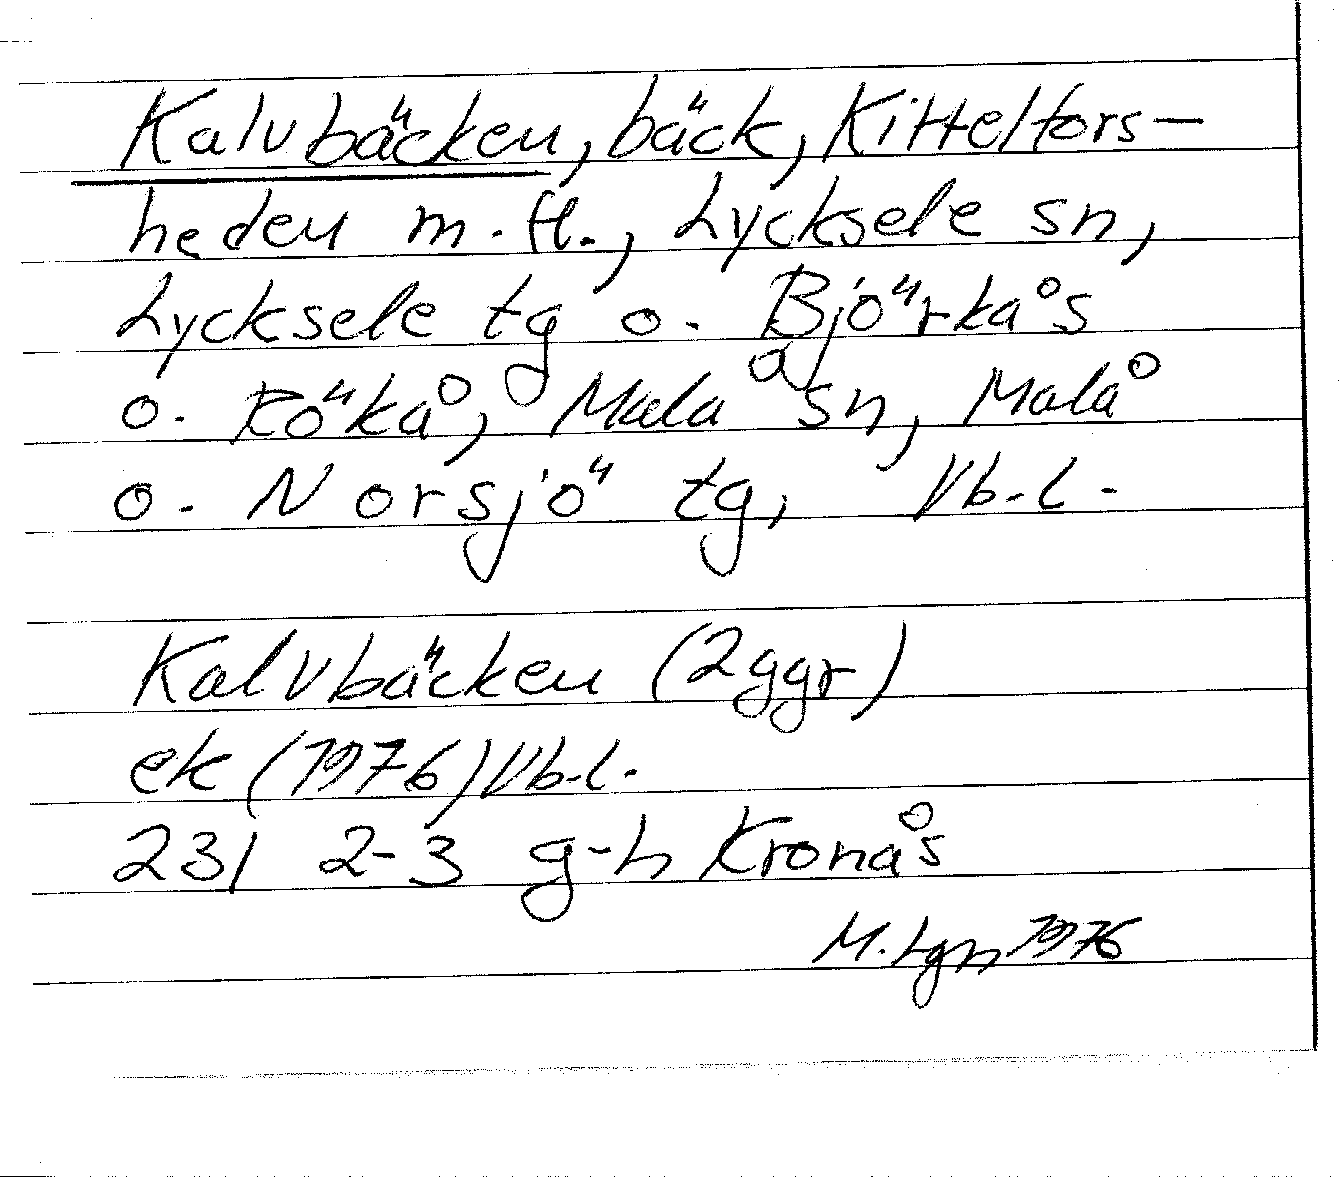 Kalvbäcken, bäck, Kittelfors-
heden m.fl., Lycksele sn,
Lycksele tg o. Björkås
o. Rökå, Malå sn, Malå
o. Norsjö tg, Vb.l.
Kalvbäcken (2ggr)
ek (1976) Vb.l.
23I 2-3 g-h Kronås
M. Lgn 1976